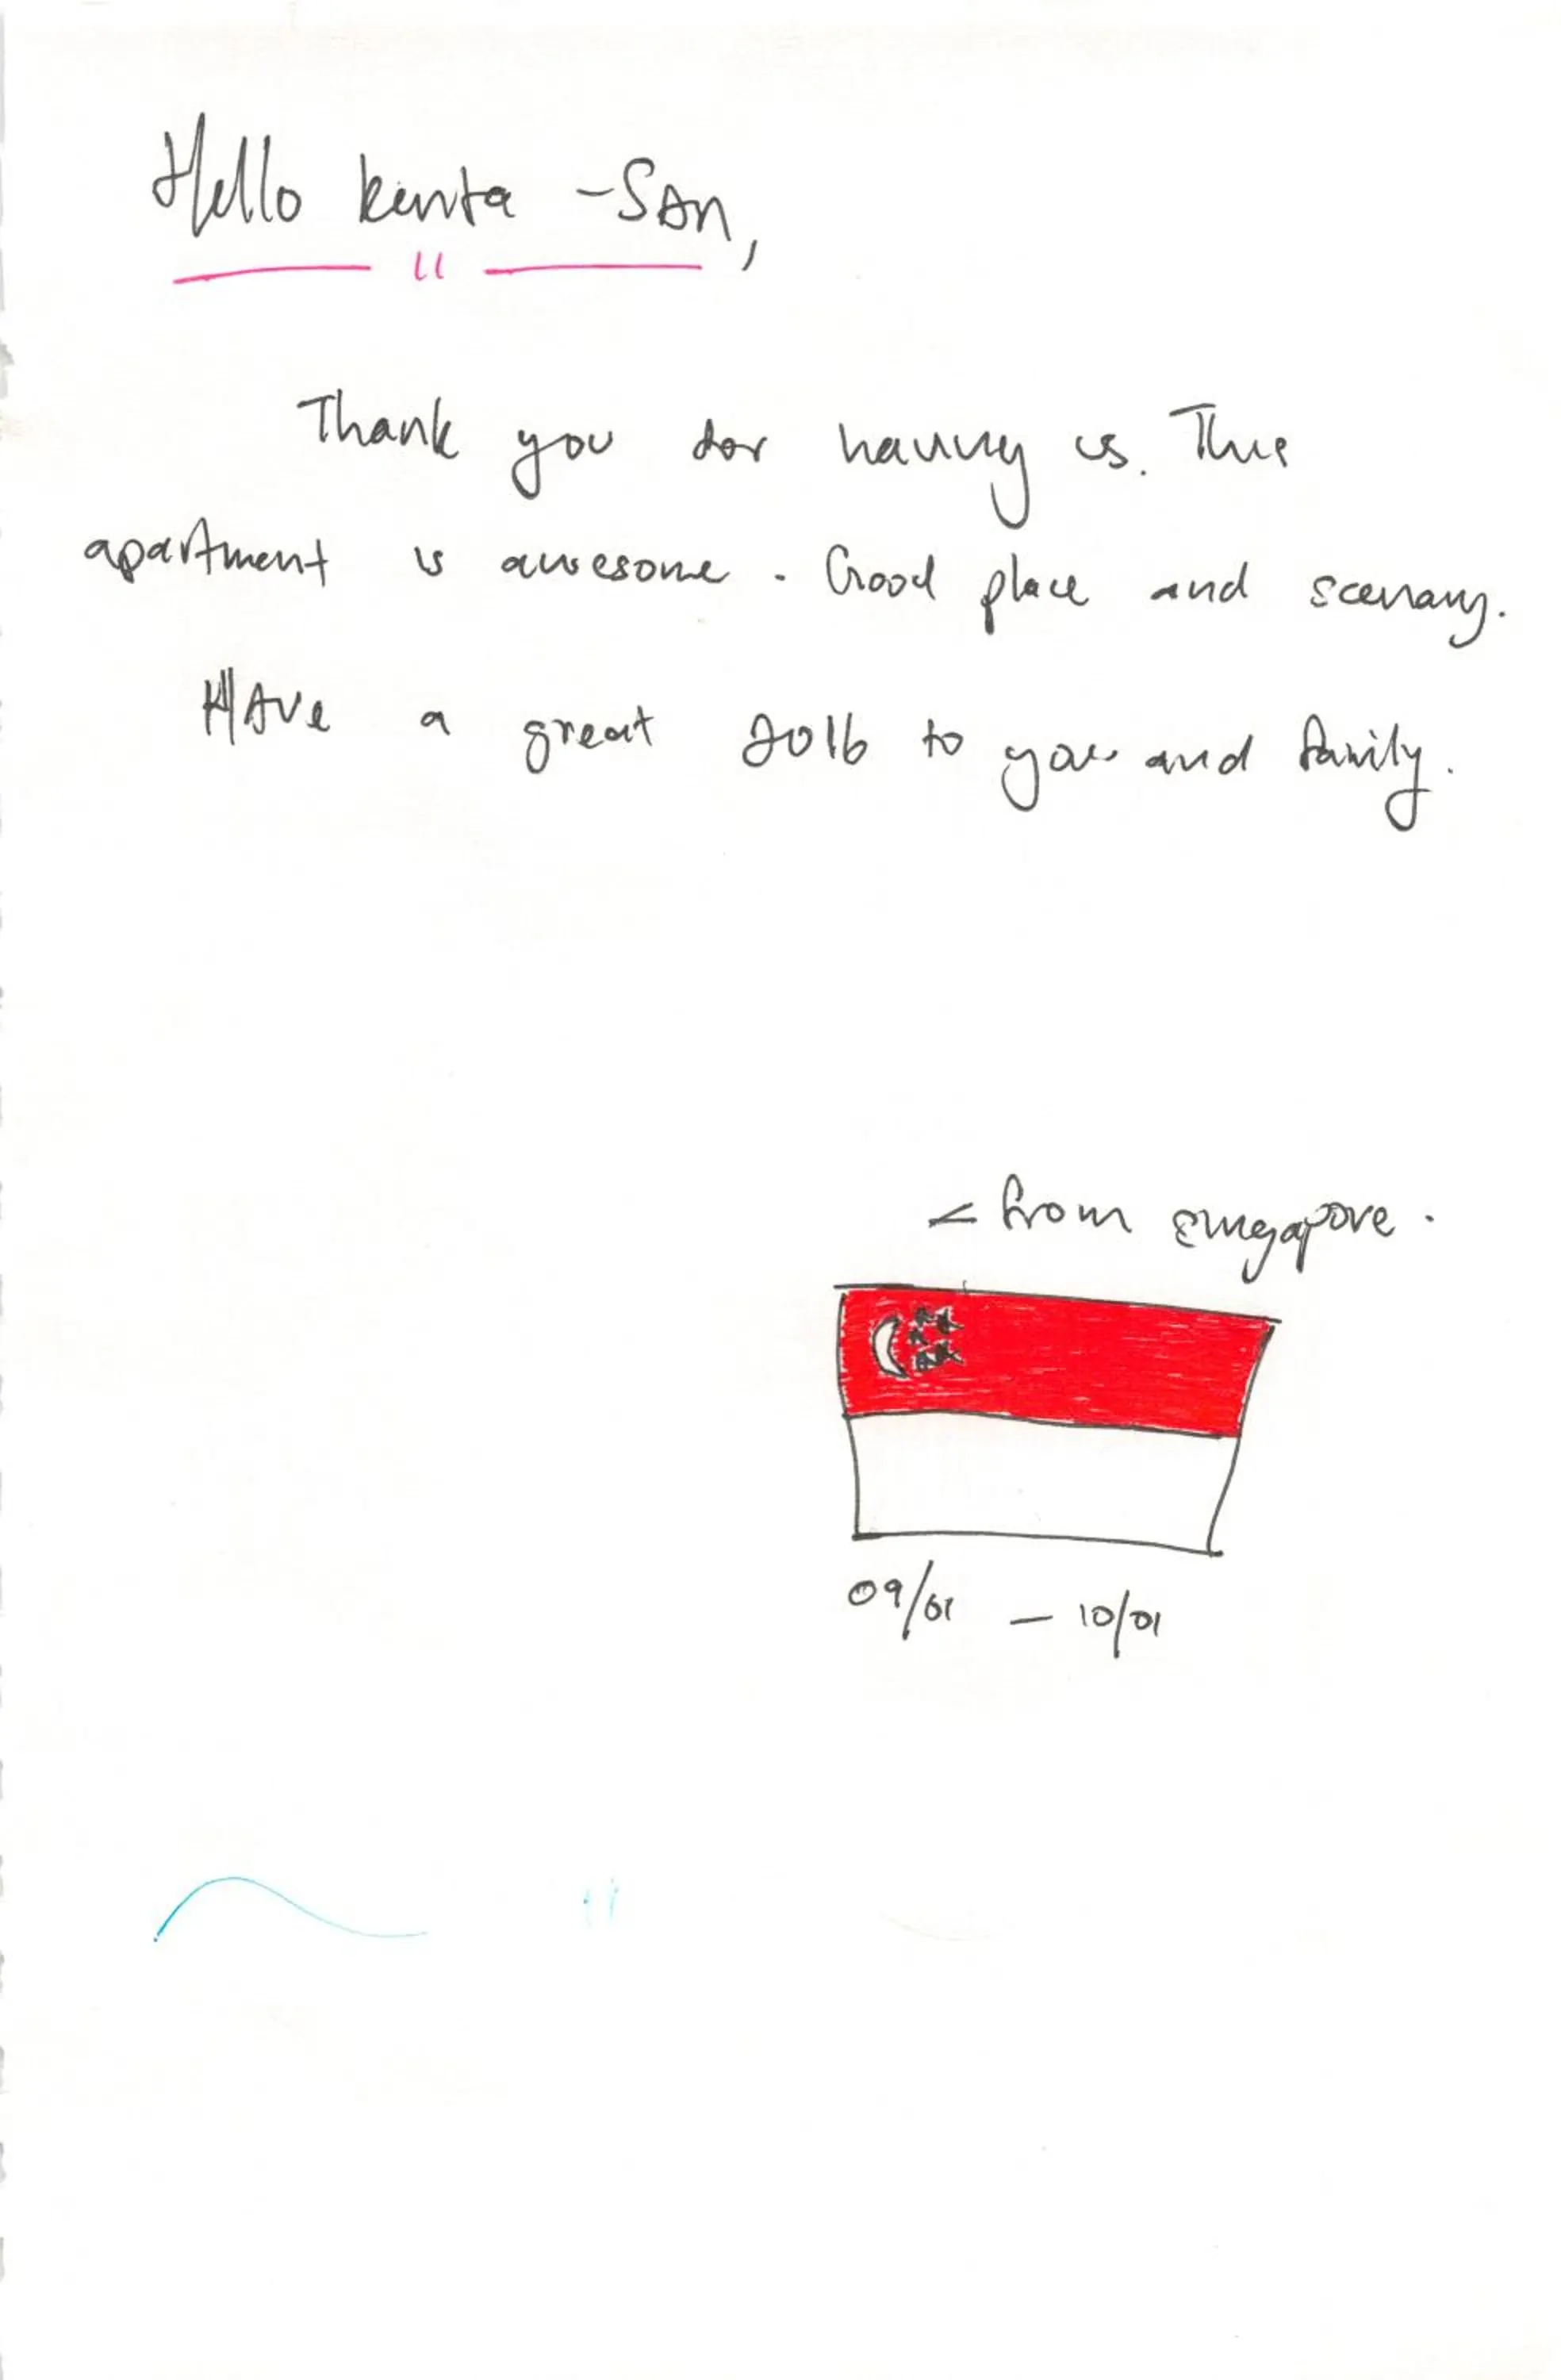 Hello kenta - SAn,
Thank you for having us. This
apartment is awesome. Good place and scenary.
HAVe a great 2016 to you and family.
< from singapore.
09/01 - 10/01